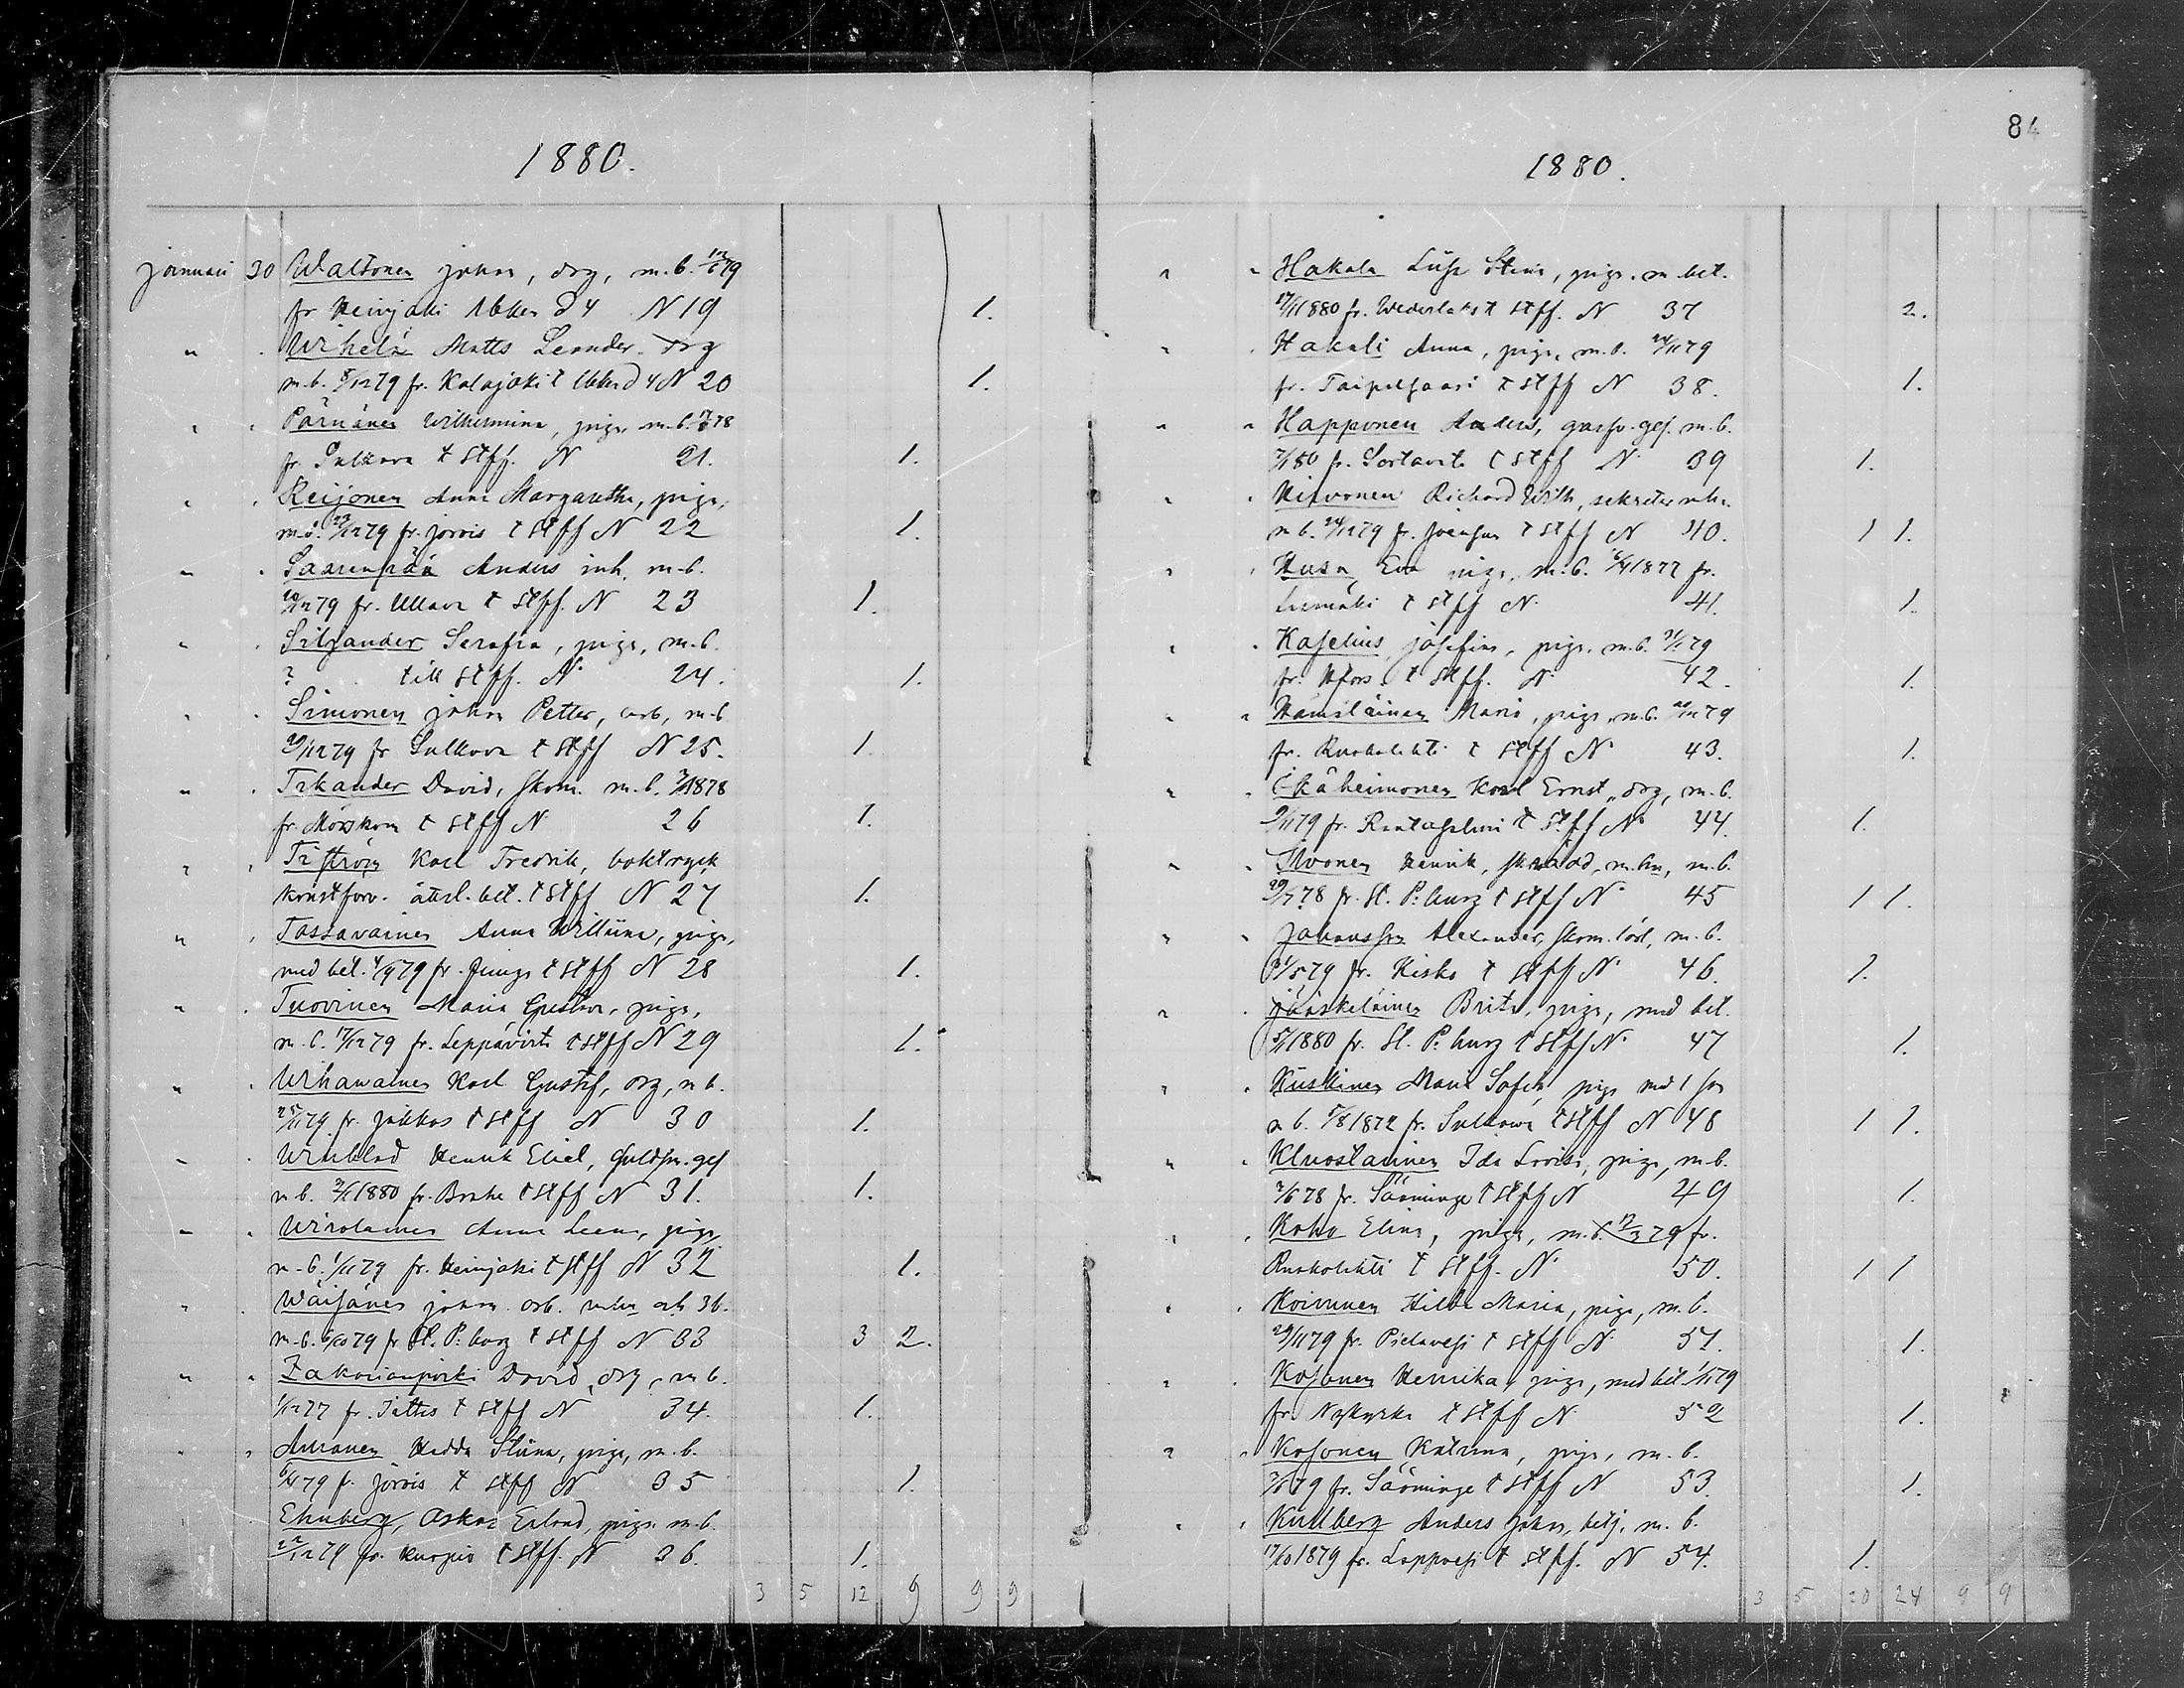 84
1880.
januari 30 Waltonen Johan, drg, m.b. 12/6 79
fr Heinjoki Ubber d 4 N 19 1.
" . Wihelä Matts Leander drg
m.b. 5/12 79 fr. Kalajoki t Ubber d 4 N 20 1.
" . Pärnänen Wilhelmina, piga, m.b. 78
fr Sulkava t Stff. N 21. 1.
" . Reijonen Anna Margaretha, piga,
m.b. 29/12 79 fr. Jorois t Stff N 22 1.
" . Saarenpää Anders inh. m.b.
20/12 79 fr. Ullava t Stff. N 23 1.
" . Siljander Serafia, piga, m.b.
? till Stff. N 24. 1.
" . Simonen Johan Petter, arb, m.b
29/12 79 fr Sulkava t Stff N 25. 1.
" . Tikander David, skom. m.b. 1878
fr. Mörskom t Stff N 26 1.
" . Karl Fredrik, boktryck
konstförv. återl. bet. t Stff N 27 1.
" . Tassavainen Anna Willina, piga,
med bet. 4/9 79 fr. Junga t Stff N 28 1.
" . Tuovinen Maria Gustava, piga,
m.b. 17/12 79 fr. Leppävirta t Stff N 29 1.
" . Wihawainen Karl Gustaf, drg, m b.
25/11 79 fr. Jokkas t Stff N 30 1.
" . Winblad Henrik Eliel, guldsm. ges
m b. 2/1 1880 fr. Brahe t Stff N 31. 1.
" . Wirolainen Anna Leena, piga,
m.b. 1/11 79 fr. Heinjoki t Stff N 32 1.
" . Wäisänen Johan arb. m hu och 3 b.
m.b. 6/10 79 fr St. P:burg t Stff N 33 3 2.
" . David, drg, m b.
1/12 77 fr. Jittis t Stff N 34. 1.
" " Auranen Hedda Stiina, piga, m.b.
6/11 79 fr. Jorois t Stff N 35 1.
" . Ehnberg, Oskar Erland, piga m.b.
22/12 79 fr. Kuopio t Stff. N 36. 1.
3 5 12 9 9 9
1880.
" " Hakala Liisa Stina, piga. m bet.
17/1 1880 fr. Wederlaks t Stff. N 37 2.
" . Hakuli Anna, piga, m.b. 24/11 79
fr. Taipalsaari t Stff N 38. 1.
" " Happonen Anders, garfv. ges. m.b.
7/1 80 fr. Sortavala t Stff N 39 1.
" . Hirvonen Richard Wilh, sekreter m hu.
m b. 24/12 79 fr. Joensuu t Stff N 40. 1 1.
" . Husu, Eva piga, m.b. 6/4 1877 fr.
Luumäki t Stff N 41. 1.
" . Kaselius Josefina, piga. m.b. 31/1 79
fr. Hfors. t Stff. N 42. 1.
" " Hämäläinen Maria, piga, m.b. 20/12 79
fr. Ruokolahti t Stff N 43. 1.
" . Ikäheimonen Karl Ernst, drg, m.b.
9/11 79 fr. Rantasalmi t Stff N 44. 1.
" . Ilvonen Henrik, skräddd, m. hu, m.b.
29/7 78 fr. St. P:burg t Stff N 45 1 1.
" . Johansson Alexander, skom. lärl, m.b.
31/5 79 fr. Kisko t Stff N 46. 1.
" . Jääskeläinen Brita, piga, med bet.
5/1 1880 fr. St. P:burg t Stff N 47 1.
" . Kiiskinen Maria Sofia, piga med 1 son
m b. 5/8 1872 fr. Sulkava t Stff N 48 1 1.
" . Ida Lovisa, piga, m.b.
2/6 78 fr. Sääminge t Stff N 49 1.
" . Koho Elina, piga, m.b. 12/3 79 fr.
Ruokolahti t Stff. N 50. 1 1
" . Koivunen Hilda Maria, piga, m.b.
29/11 79 fr. Pielavesi t Stff N 51. 1.
" . Kosonen Henrika, piga, med bet 1/11 79
fr. Nykyrka t Stff N 52 1.
" " Kosonen Katrina, piga, m.b.
7/6 79 fr. Sääminge t Stff N 53. 1.
" . Kullberg Anders Johan, betj. m.b.
17/10 1879 fr. Loppvesi t Stff. N 54. 1.
3 5 20 24 9 9